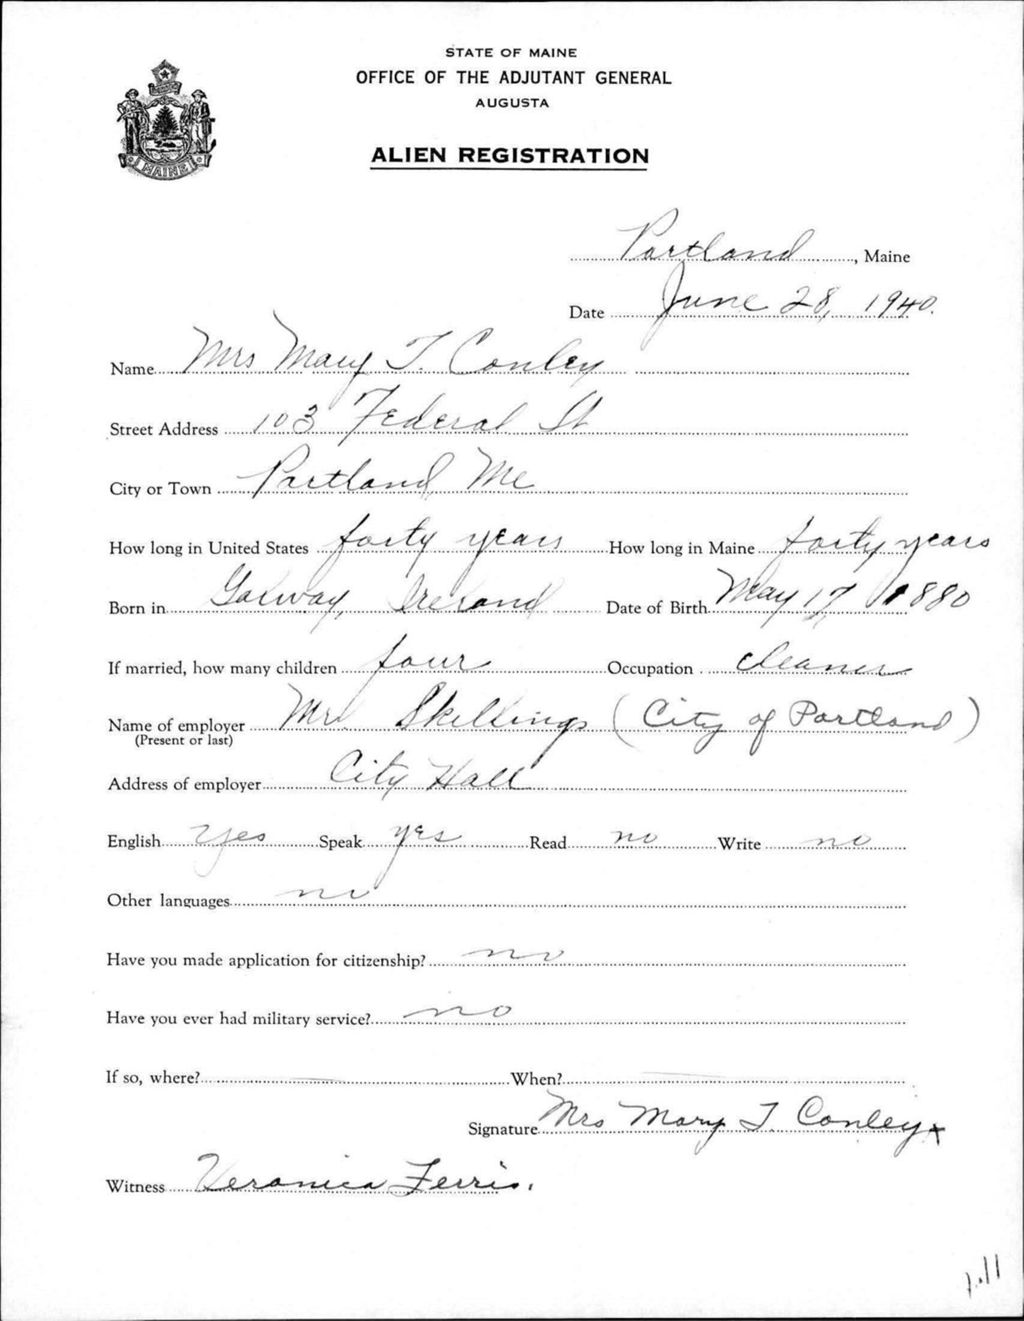 STATE OF MAINE
OFFICE OF THE ADJUTANT GENERAL
AUGUSTA
MAINE
ALIEN REGISTRATION
Portland, Maine
Date June 28, 1940.
Name Mrs Mary T. Conley
Street Address 103 Federal St
City or Town Portland, Me
How long in United States forty years How long in Maine forty years
Born in Galway, Ireland Date of Birth May 17, 1880
If married, how many children four Occupation cleaner
Name of employer Mr. Skillings (City of Portland)
(Present or last)
Address of employer City Hall
English Yes Speak yes Read no Write no
Other languages no
Have you made application for citizenship? no
Have you ever had military service? no
If so, where? When?
Signature Mrs Mary T. Conley x
Witness Veronica Ferris.